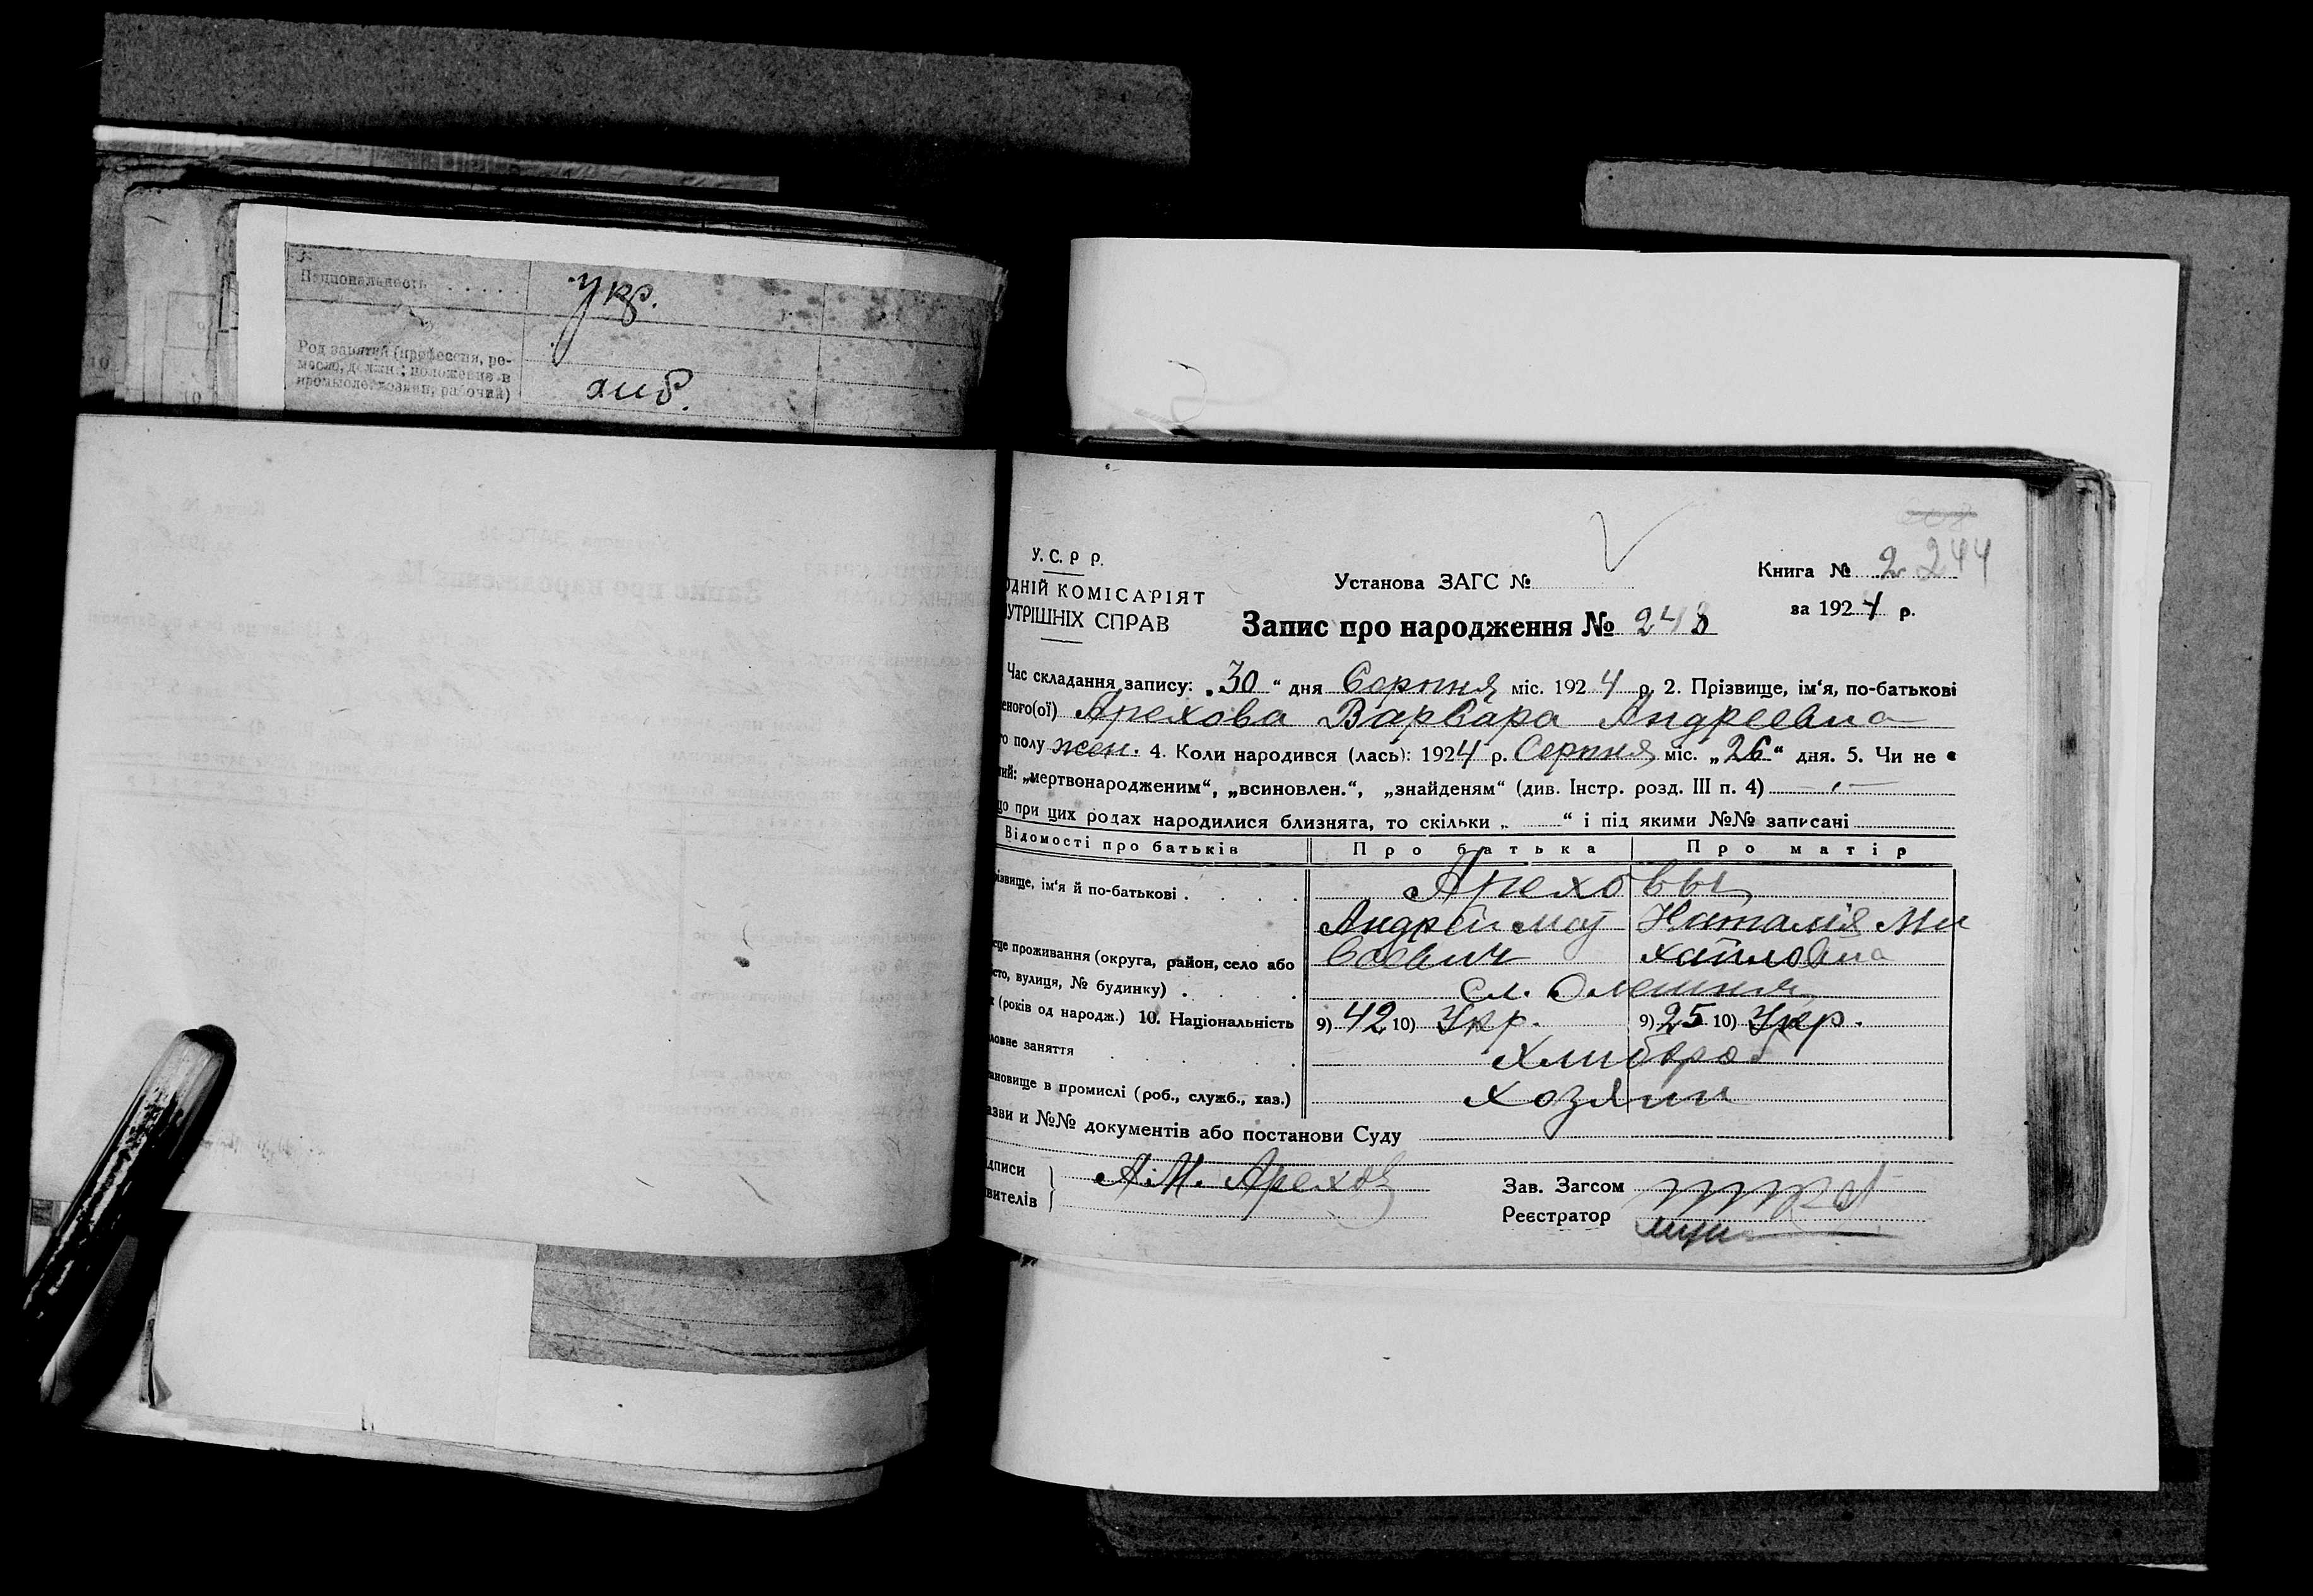 Национальность . . . . . укр.
Род занятий (профессия, ре-
месло, должн.; положение в
промысле: хозяин, рабочий)
хліб.
У.С.Р Р.
ОДНІЙ КОМІСАРІЯТ
УТРІШНІХ СПРАВ
Установа ЗАГС №
Книга № 2 244
за 1924 р.
Запис про народження № 248
Час складання запису: „30“ дня Серпня міс. 1924 р. 2. Прізвище, ім'я, по-батькові
еного(ої) Арехова Варвара Андреевна
го полу жен. 4. Коли народився (лась): 1924 р. Серпня міс. „26“ дня. 5. Чи не є
ний: „мертвонародженим“, „всиновлен.“, „знайденям“ (див. Інстр. розд. III п. 4) — „ —
що при цих родах народилися близнята, то скільки „ “ і під якими №№ записані
Відомості про батьків Про батька Про матір
різвище, ім'я й по-батькові . . . . Ареховы
Андрей Мой Наталія Ми
сеевич хайловна
це проживання (округа, район, село або
сто, вулиця, № будинку) . . сл. Олешня
к (років од народж.) 10. Національність 9) 42 10) Укр. 9) 25 10) Укр.
ловне заняття . . . . Хлибороб
ановище в промислі (роб., служб., хаз.) Хозяин
азви и №№ документів або постанови Суду
дписи
вителів
А. М. Арехов
Зав. Загсом
Реєстратор